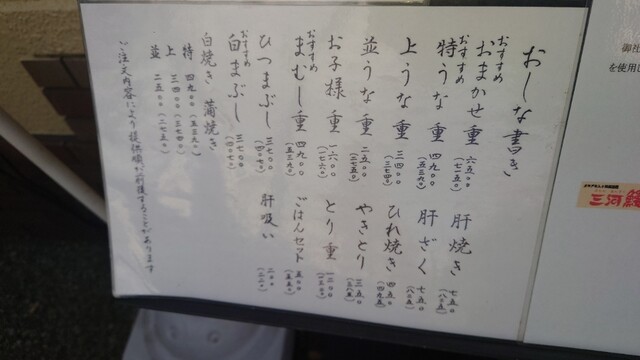 おしな書き
おすすめ
おまかせ重 六五〇〇
(七一五〇)
おすすめ
特うな重 四九〇〇
(五三九〇)
上うな重 三四〇〇
(三七四〇)
並うな重 二五〇〇
(二七五〇)
お子様重 一六〇〇
(一七六〇)
おすすめ
まむし重 四九〇〇
(五三九〇)
ひつまぶし 三七〇〇
(四〇七〇)
おすすめ
白まぶし 三七〇〇
(四〇七〇)
肝焼き 七五〇
(八二五)
肝ざく 七五〇
(八二五)
ひれ焼き 四五〇
(四九五)
やきとり 三五〇
(三八五)
とり重
ごはんセット 五〇〇
(五五〇)
肝吸い 二〇〇
(二二〇)
白焼き 蒲焼き
特 四九〇〇(五三九〇)
上 三四〇〇(三七四〇)
並 二五〇〇(二七五〇)
ご注文内容により提供順が前後することがあります
御社
を使用し
三河鰻